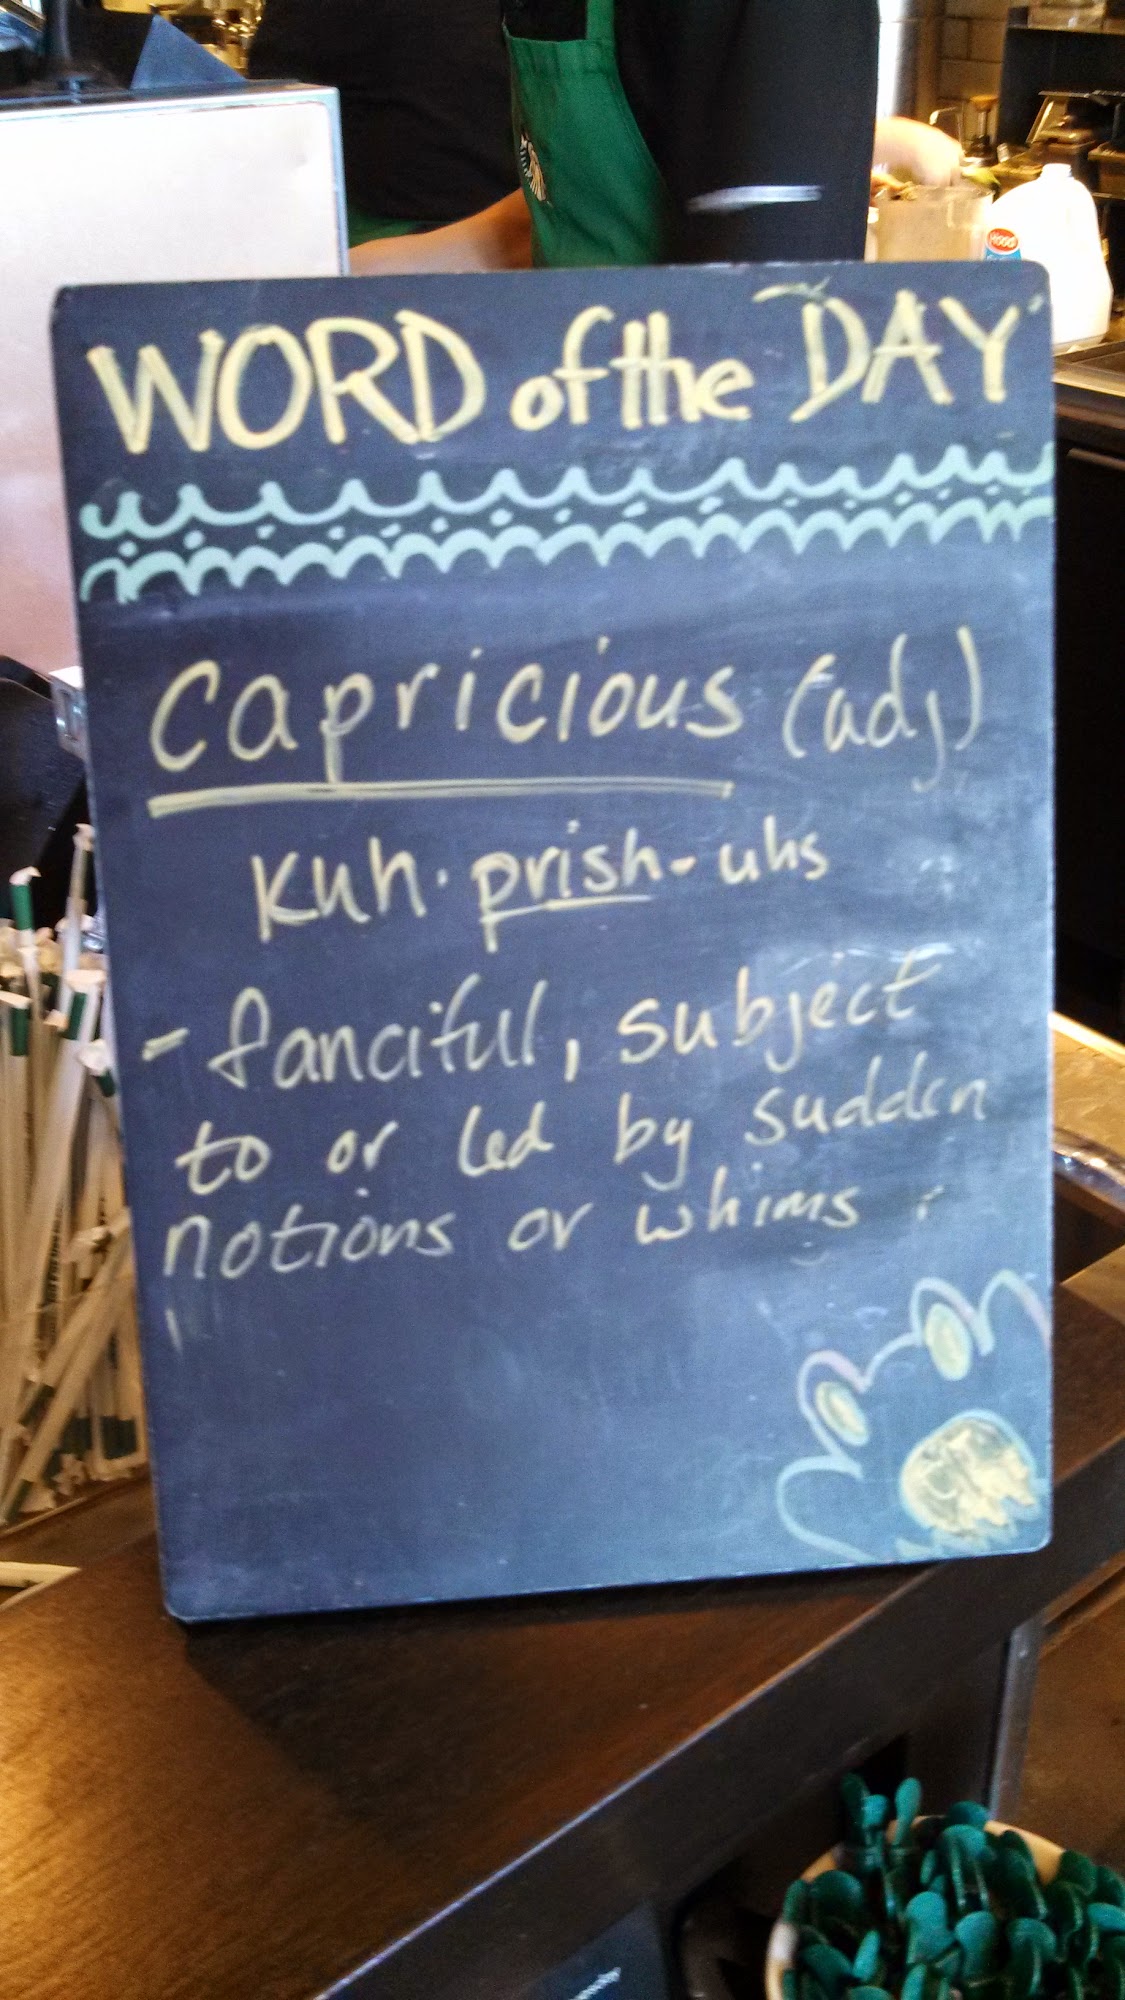 WORD of the "DAY"
Capricious (adj)
Kuh·prish-uhs
- fanciful, subject
to or led by sudden
notions or whims.
Hood